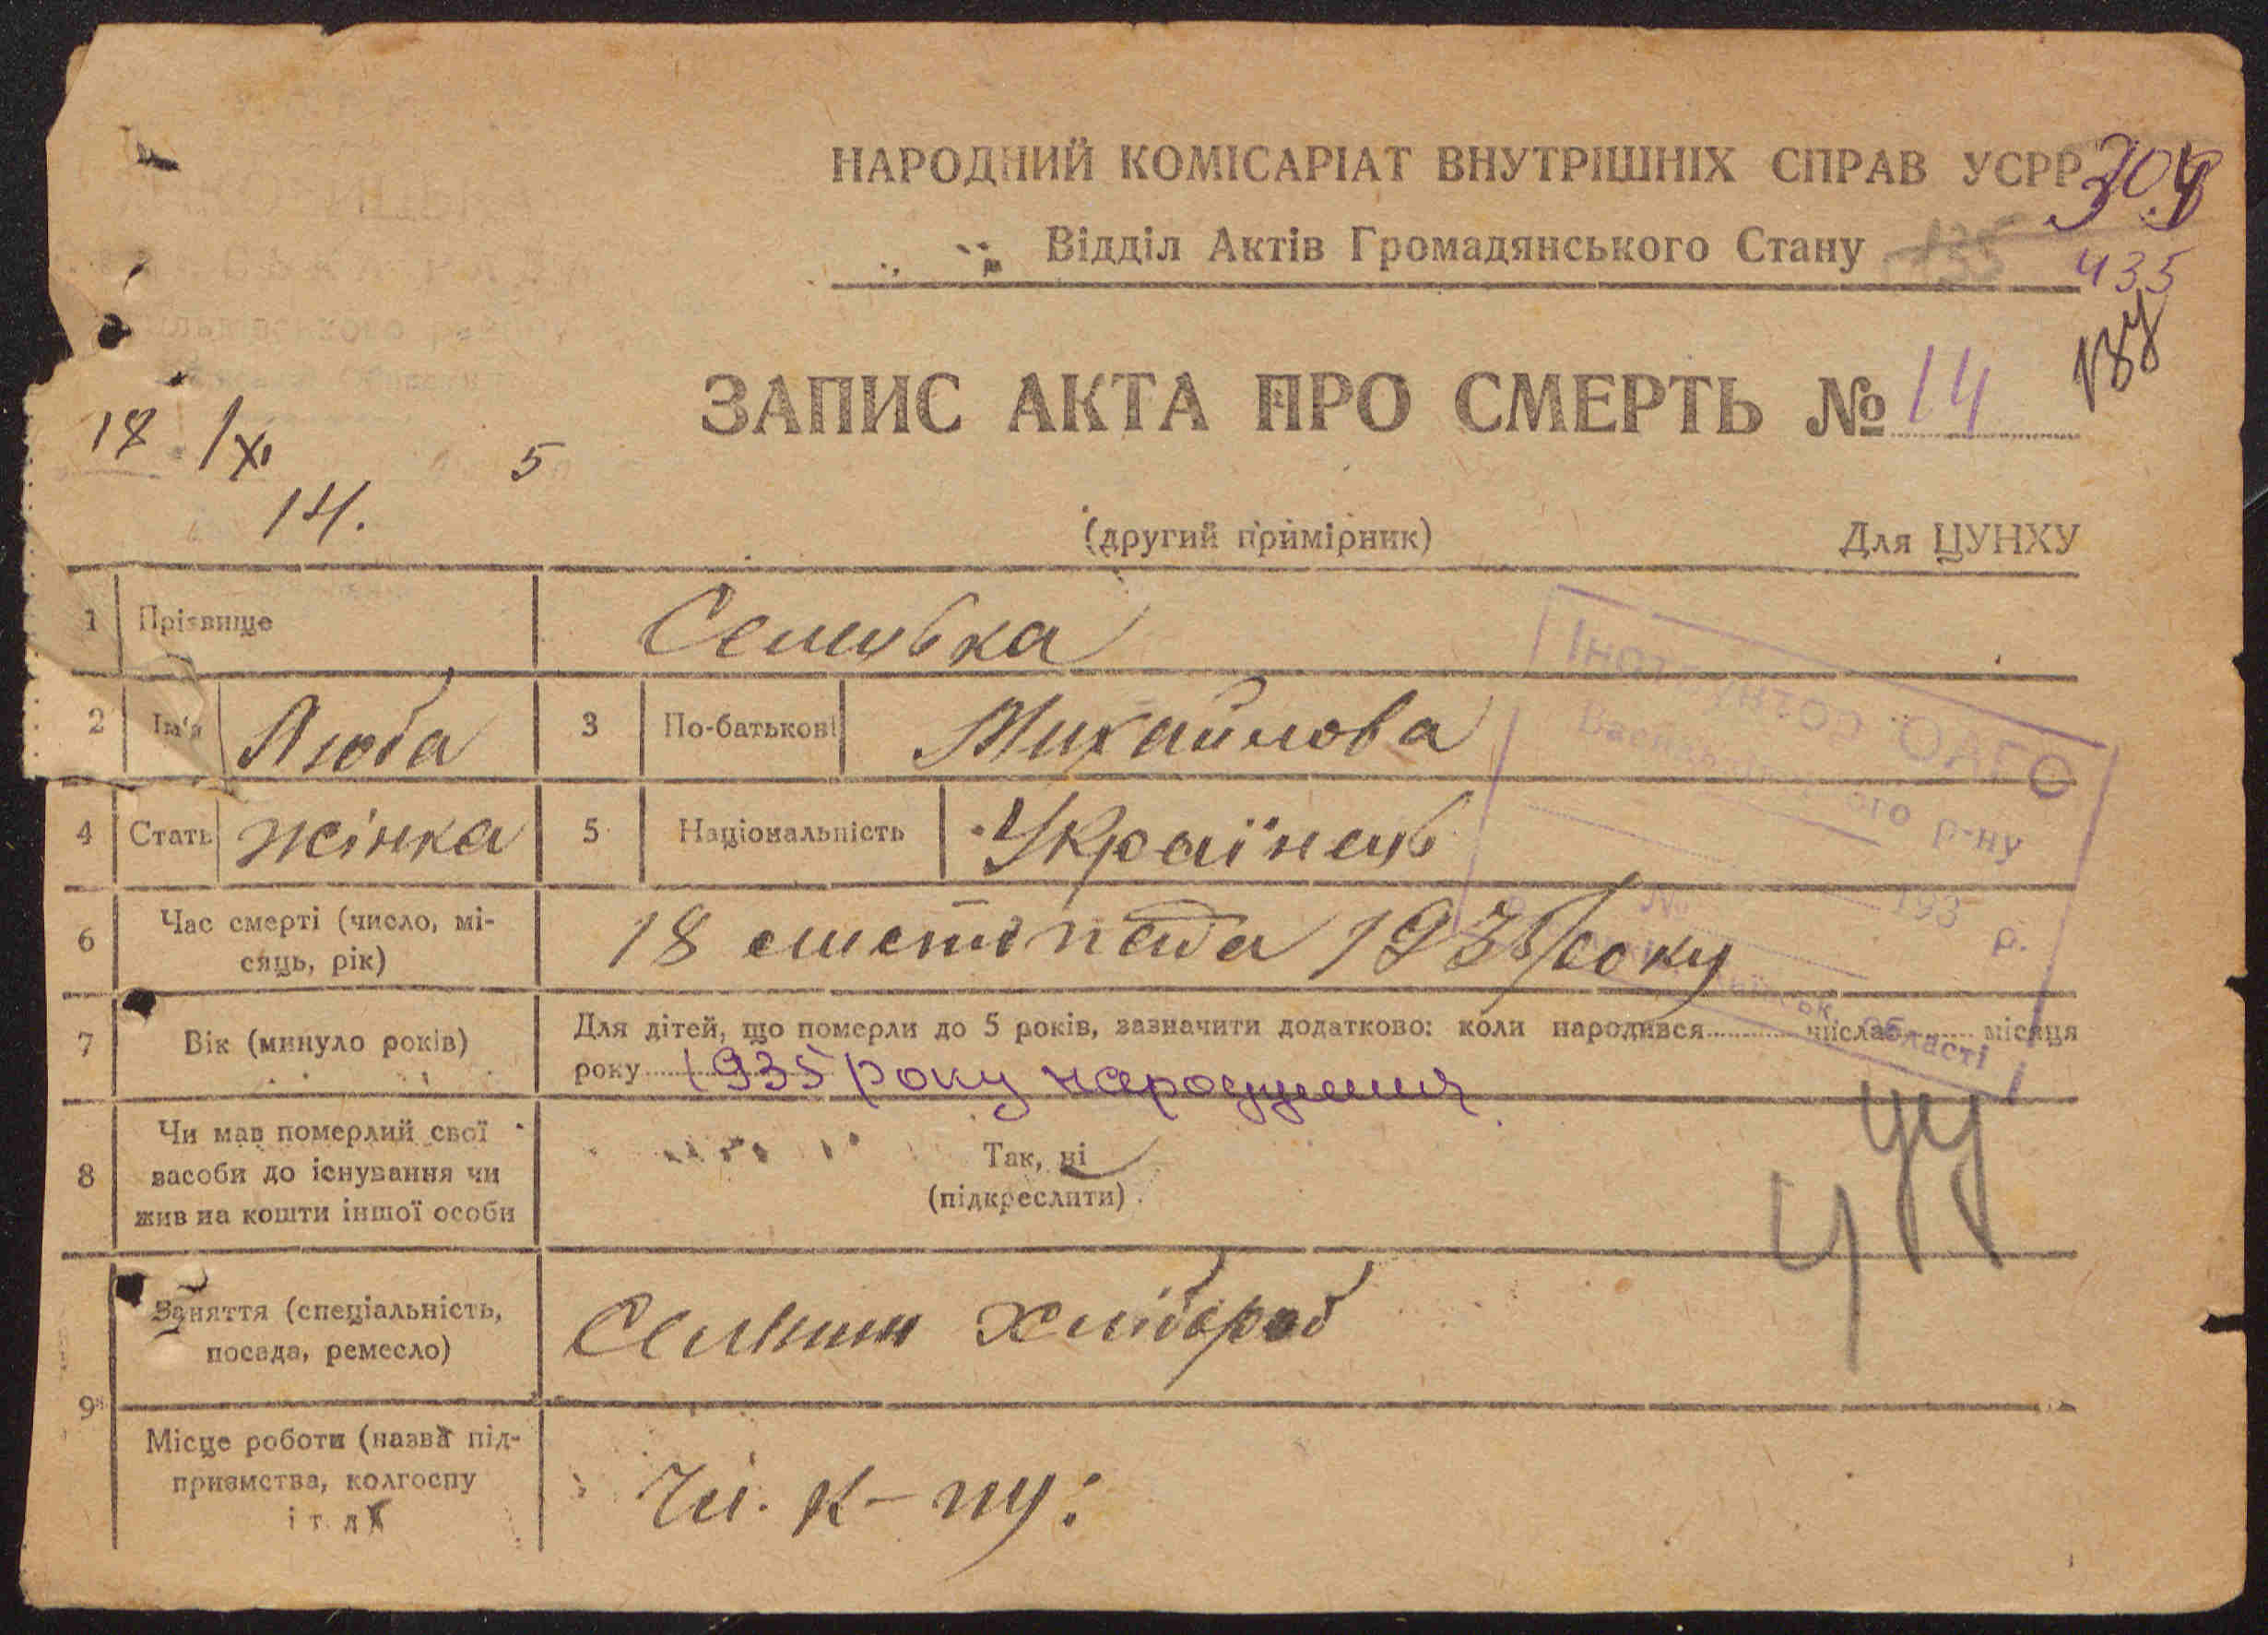 НАРОДНИЙ КОМІСАРІАТ ВНУТРІШНІХ СПРАВ УСРР
Відділ Актів Громадянського Стану 135
435
ЗАПИС АКТА ПРО СМЕРТЬ № 14
18 /XI 5
14.
(другий примірник) Для ЦУНХУ
1 Прізвище
2 Ім'я Люба 3 По-батькові Михайлова
4 Стать жінка 5 Національність Українець
6 Час смерті (число, мі-
сяць, рік) 18 листопада 1935 року
7 Вік (минуло років) Для дітей, що померли до 5 років, зазначити додатково: коли народився числа місяця
року 1935 року народження
8 Чи мав померлий свої
засоби до існування чи
жив на кошти іншої особи
Так, ні
(підкреслити)
9 Заняття (спеціальність,
посада, ремесло) Селянин Хлібороб
Місце роботи (назва під-
приємства, колгоспу
і т. д.
Чл. к-пу:
Інспектура ОАГС
Васильківського р-ну
№
193 р.
Київськ. області